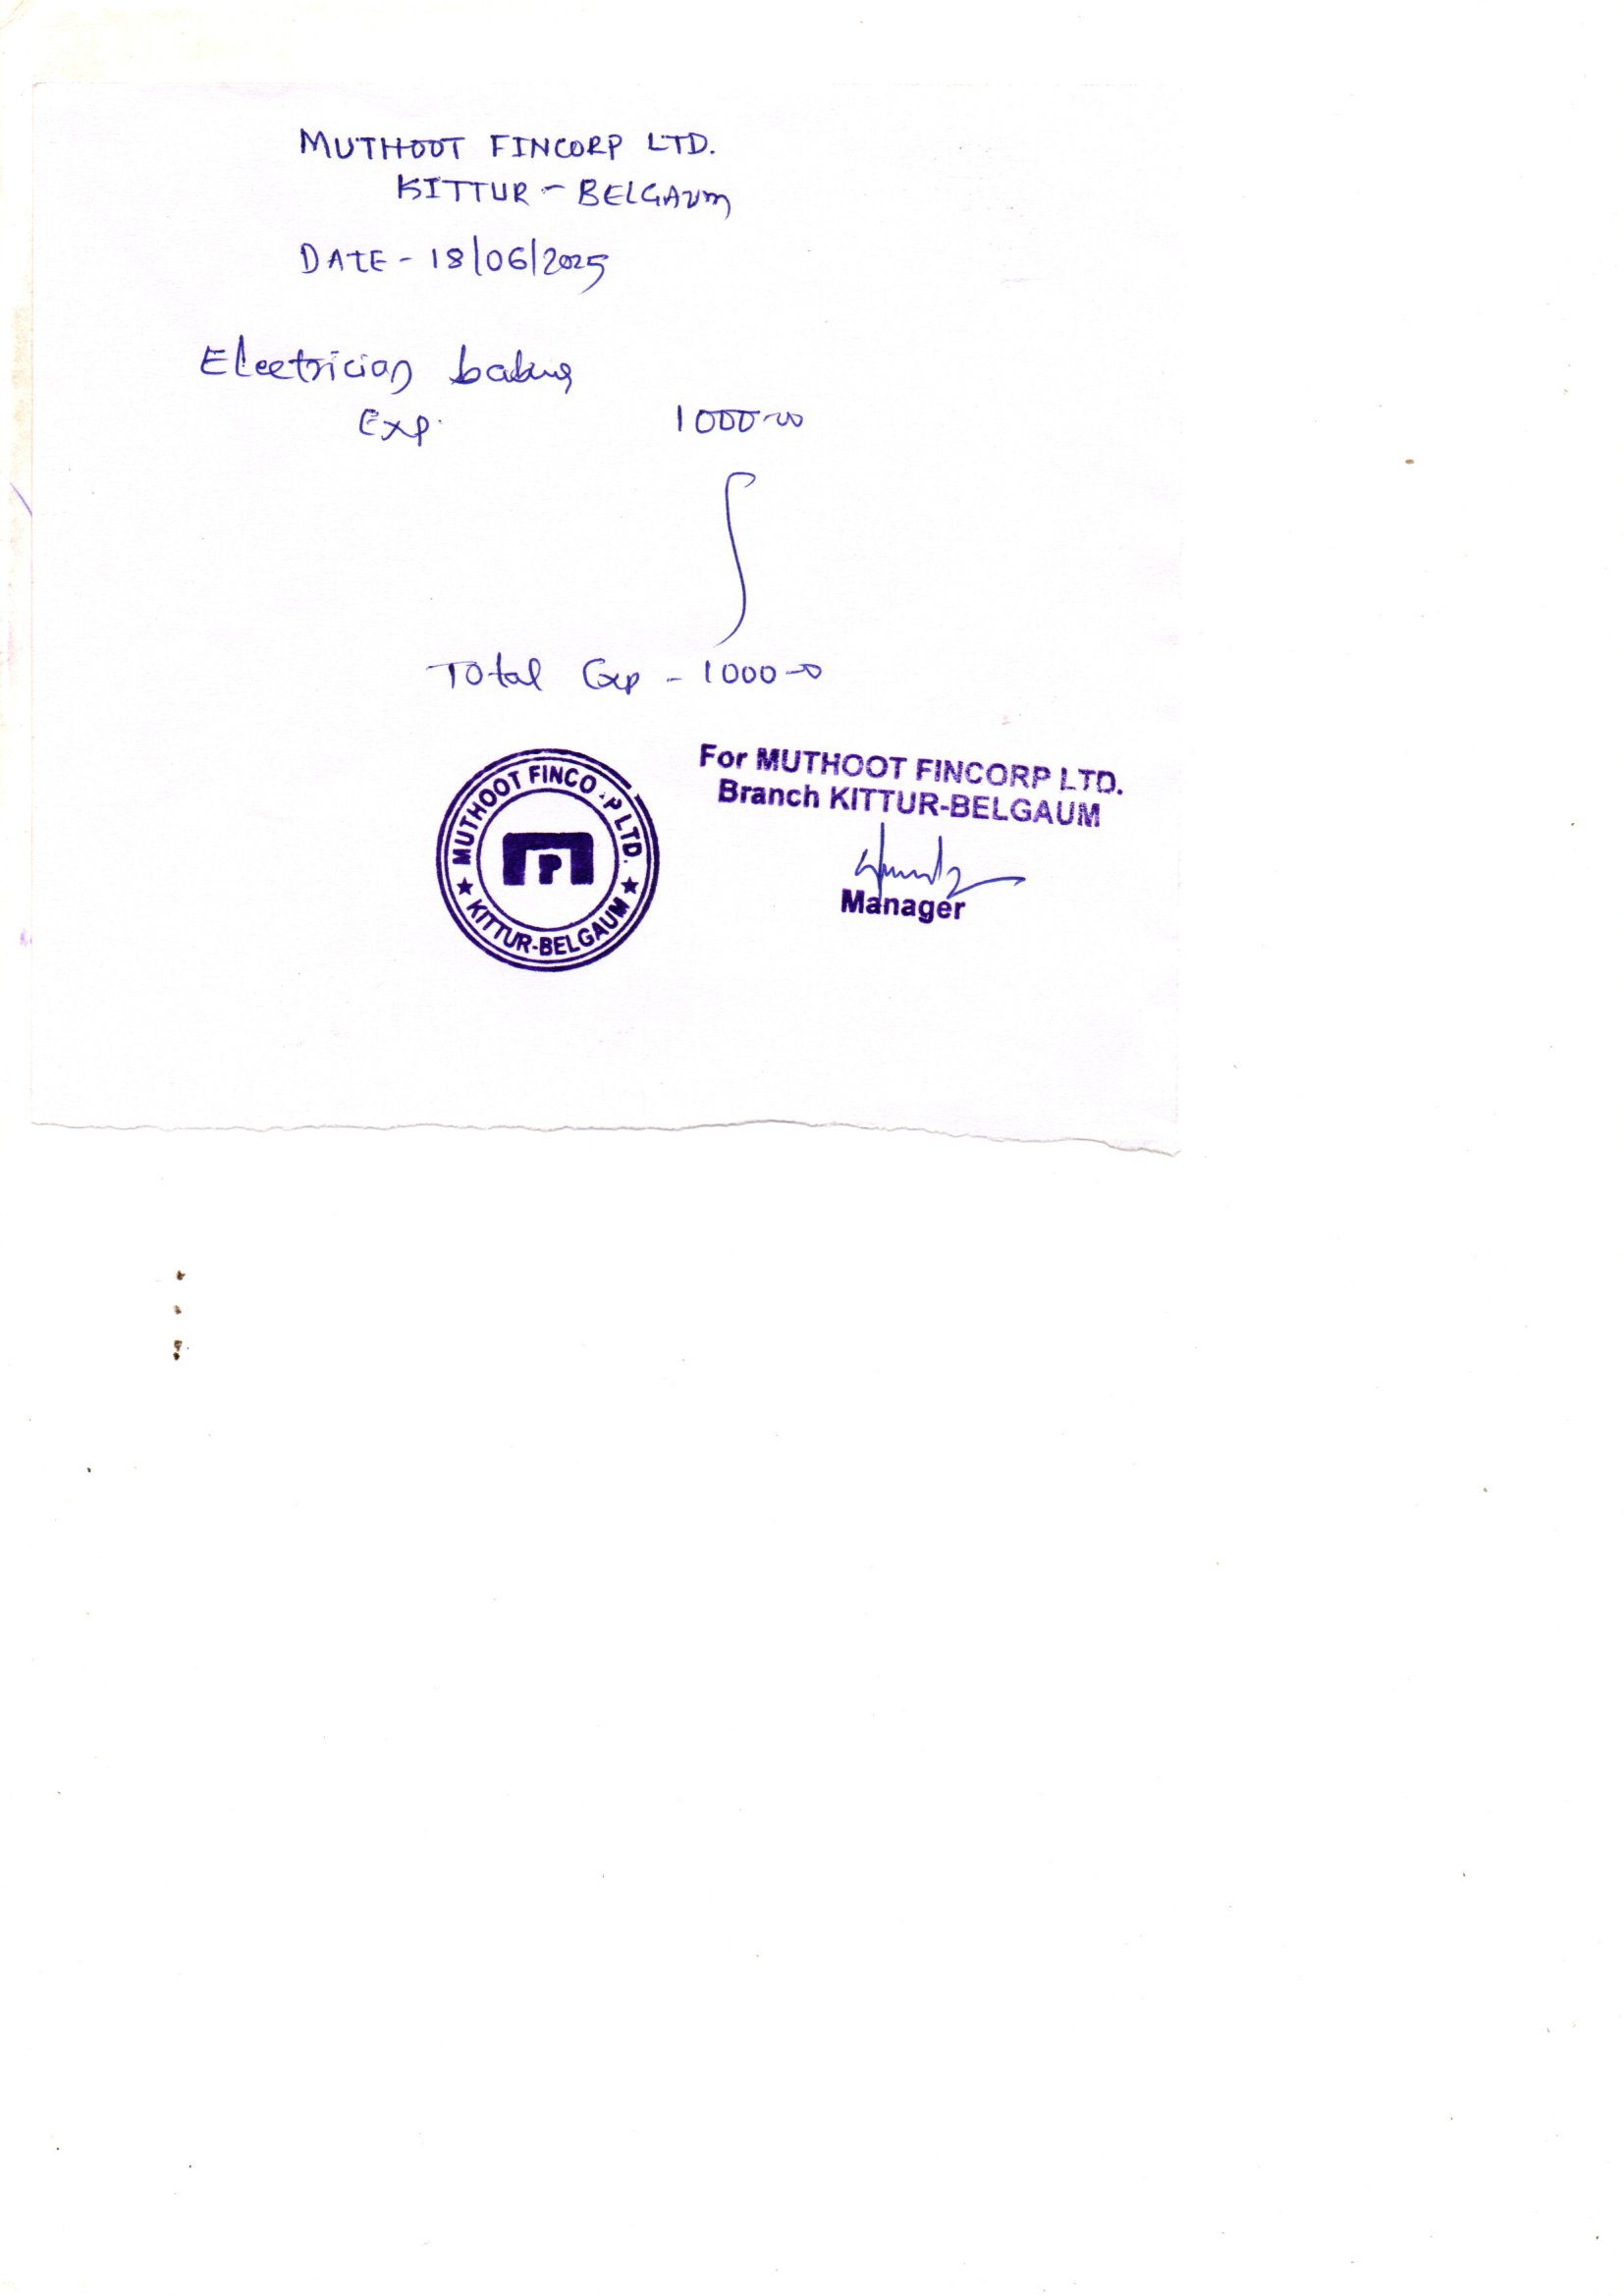 MUTHOOT FINCORP LTD.
KITTUR - BELGAUM
DATE - 18/06/2025
Electrician
Exp. 1000-00
Total Exp - 1000-00
MUTHOOT FINCO.P LTD.
P
★ KITTUR-BELGAUM ★
For MUTHOOT FINCORP LTD.
Branch KITTUR-BELGAUM
Manager